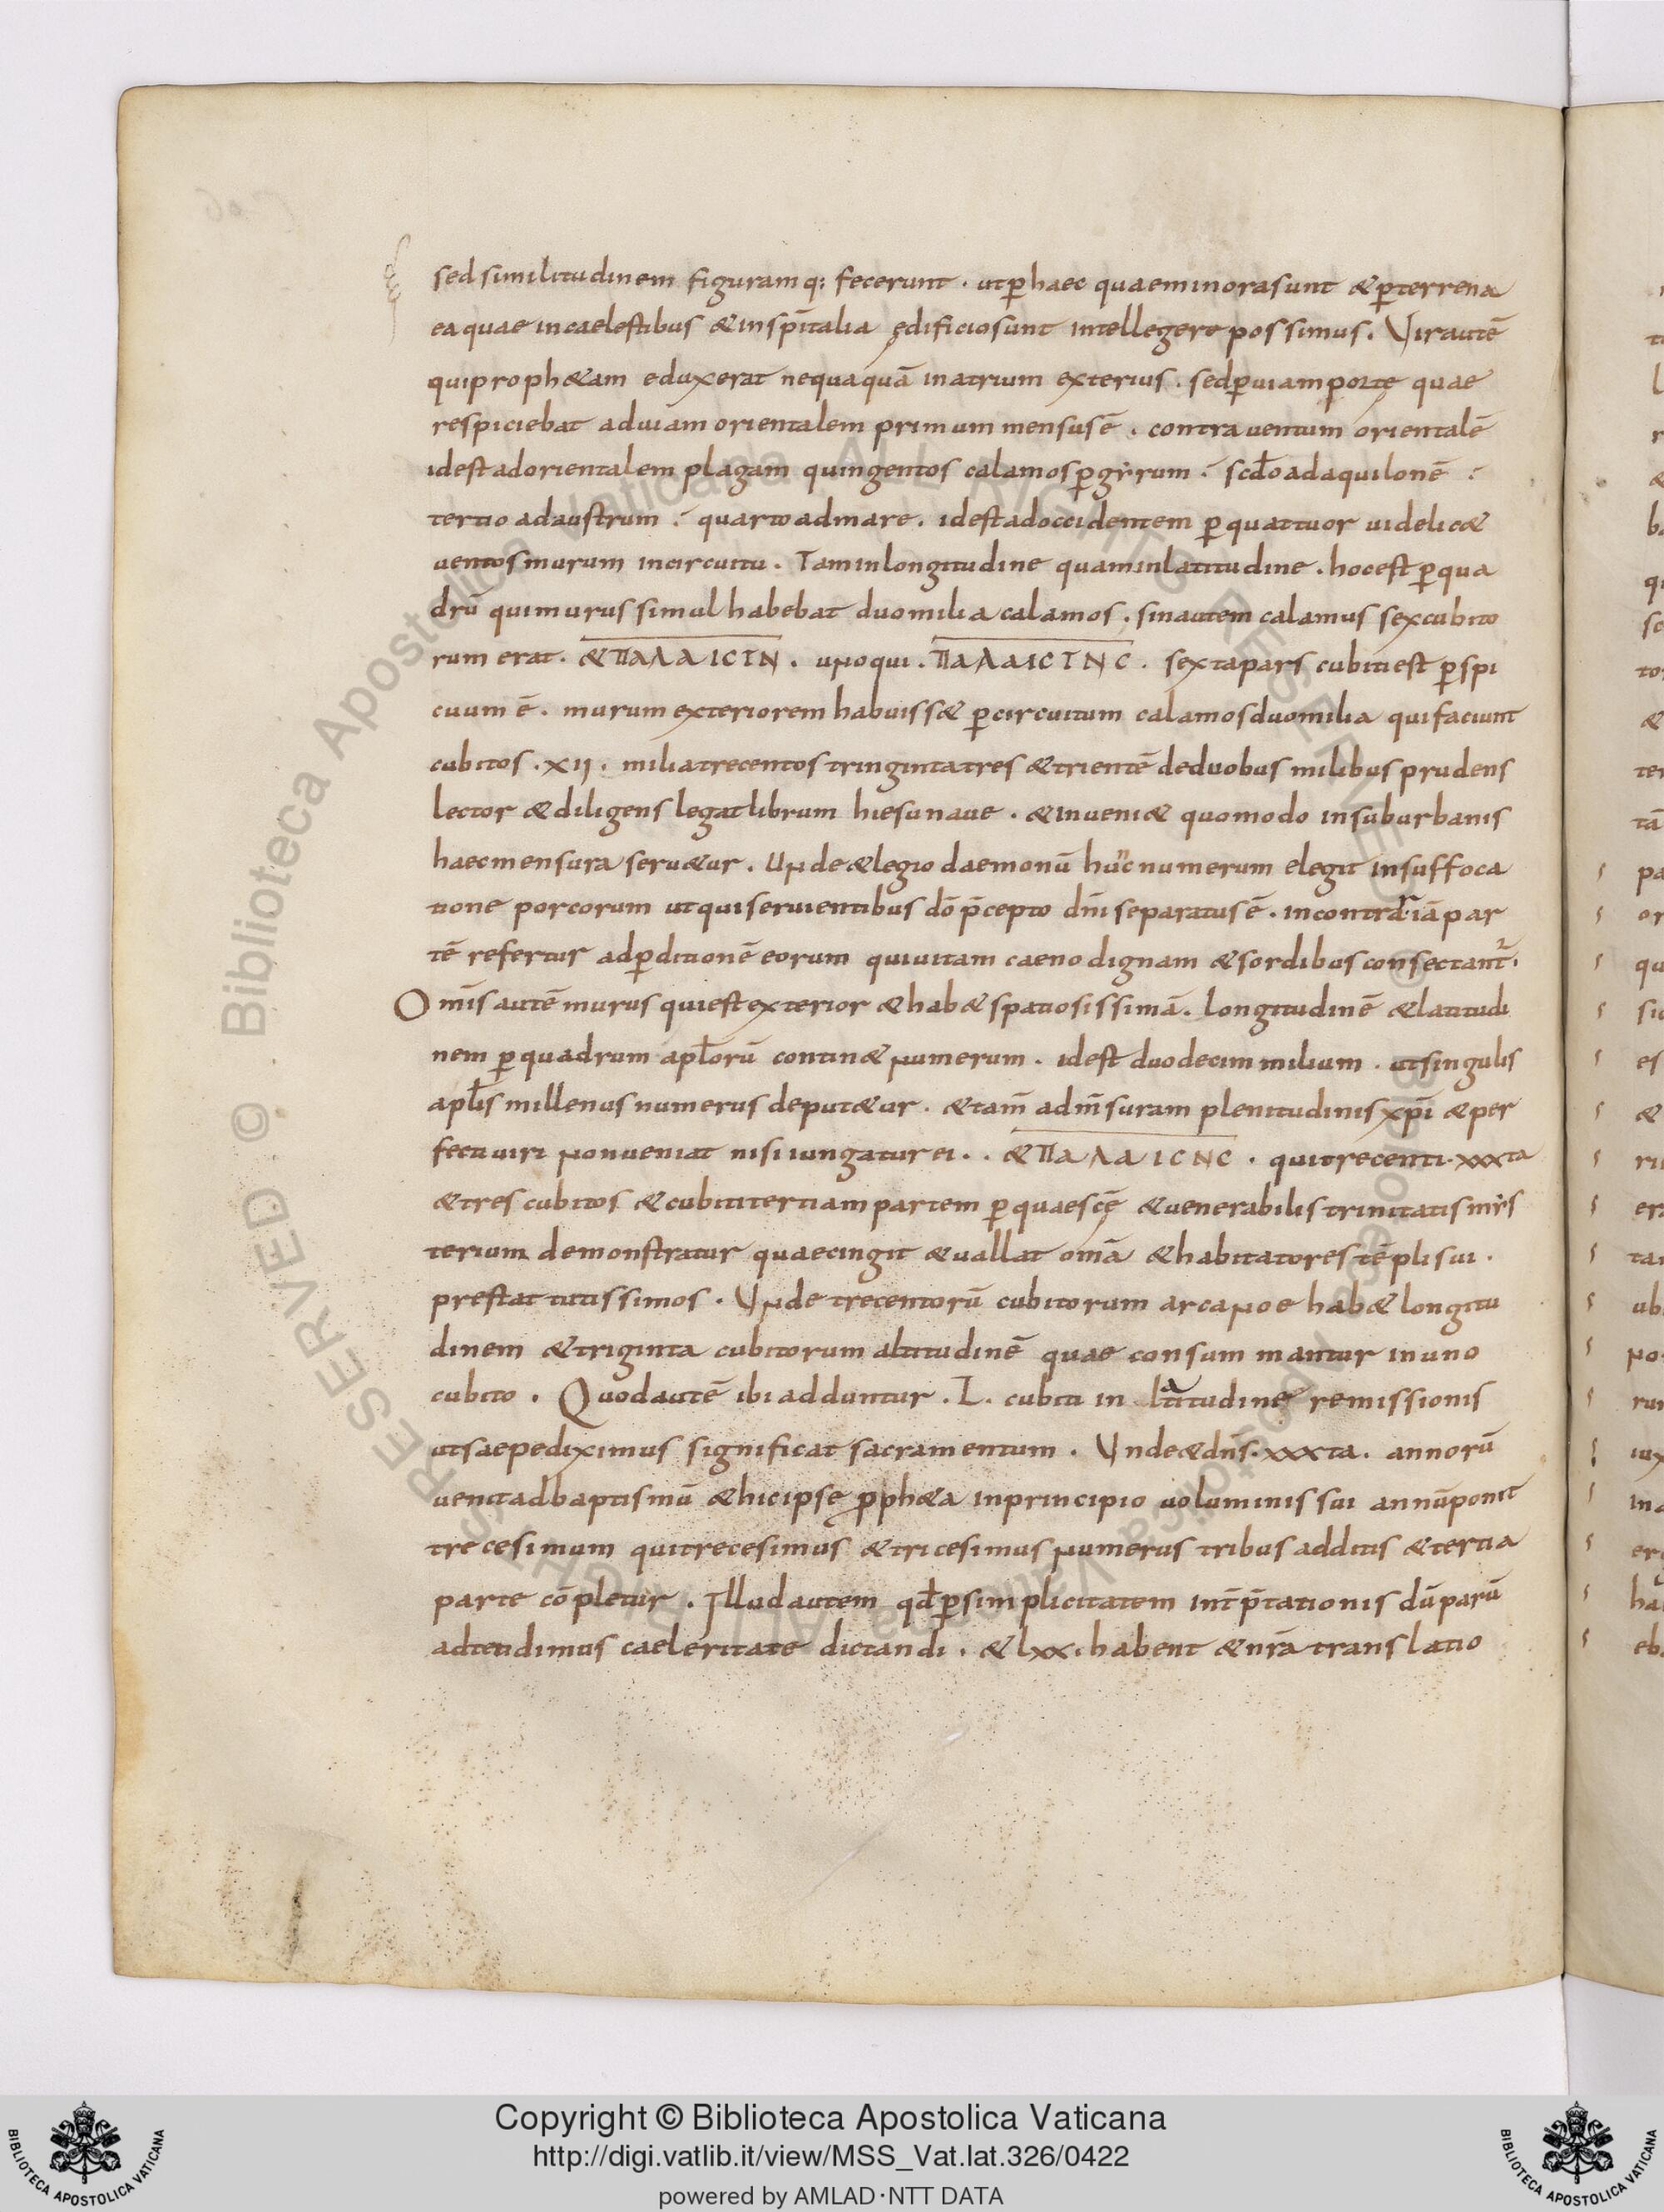 sed similitudinem figuram q; fecerunt . ut p̄ haec quae minora sunt & p̄ terrena
ea quae in caelestibus & in sp̄italia ędificio sunt intellegere possimus . Vir autē
qui proph&am eduxerat nequaquā in atrium exterius . sed p̄ uiam portę quae
respiciebat ad uiam orientalem primum mensus ē . contra uentum orientalē
id est ad orientalem plagam quingentos calamos p̄ gyrum . scd̄o ad aquilonē .
tertio ad austrum . quarto ad mare . id est ad occidentem p̄ quattuor uidelic&
uentos murum in circuitu . Tam in longitudine quam in latitudine . hoc est p̄ qua
drū qui murus simul habebat duo milia calamos . sin autem calamus sex cubito
rum erat . & ΠαΛαICTN . uno qui . ΠαΛαICTNC . sexta pars cubiti est p̄spi
cuum ē . murum exteriorem habuiss& p̄ circuitum calamos duo milia qui faciunt
cubitos . xii . milia trecentos tringinta tres & trientē de duobus milibus prudens
lector & diligens legat librum hiesu naue . & inueni& quomodo in suburbanis
haec mensura seru&ur . Unde & legio daemonū hūc numerum elegit in suffoca
tione porcorum ut qui seruientibus dō p̄cepto dn̄i separatus ē . in contrariā par
tē refertur ad p̄ditionē eorum qui uitam caeno dignam & sordibus consectant̄ .
Om̄is autē murus qui est exterior & hab& spatiosissimā . longitudinē & latitudi
nem p̄ quadrum apl̄orū contin& numerum . id est duodecim milium . ut singulis
apl̄is millenus numerus deput&ur . & tam̄ ad m̄suram plenitudinis xp̄i & per
fecti uiri non ueniat nisi iungatur ei . . & ΠαΛαICNC . qui trecenti . xxxta
& tres cubitos & cubiti tertiam partem p̄ quae scę̄ & uenerabilis trinitatis mys
terium demonstratur quae cingit & uallat om̄a & habitatores tēpli sui .
prestat tutissimos . Vnde trecentorū cubitorum arca noe hab& longitu
dinem & triginta cubitorum altitudinē quae consummantur in uno
cubito . Quod autē ibi adduntur . L . cubiti in latitudine remissionis
ut saepe diximus significat sacramentum . Vnde & dn̄s . xxxta . annorū
uenit ad baptismū & hic ipse p̄ph&a in principio uoluminis sui annū ponit
trecesimum qui trecesimus & tricesimus numerus tribus additis & tertia
parte cō pletur . Illud autem qd̄ p̄ simplicitatem int̄p̄tationis dū parū
adtendimus caeleritate dictandi . & lxx . habent & nr̄a translatio
Copyright © Biblioteca Apostolica Vaticana
http://digi.vatlib.it/view/MSS_Vat.lat.326/0422
powered by AMLAD·NTT DATA